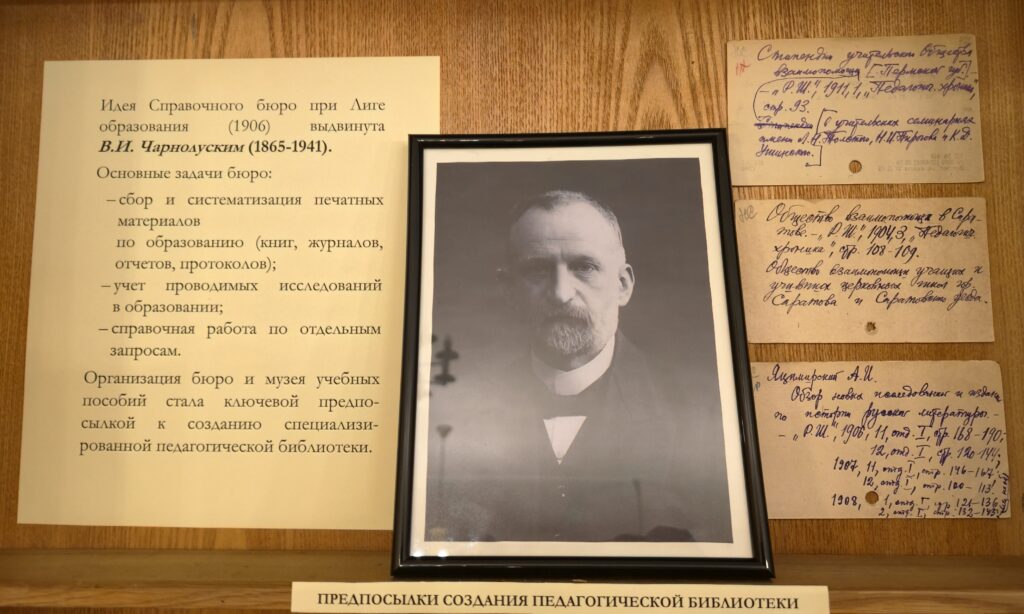 Идея Справочного бюро при Лиге
образования (1906) выдвинута
В.И. Чарнолуским (1865-1941).
Основные задачи бюро:
– сбор и систематизация печатных
материалов
по образованию (книг, журналов,
отчетов, протоколов);
– учет проводимых исследований
в образовании;
– справочная работа по отдельным
запросам.
Организация бюро и музея учебных
пособий стала ключевой предпо-
сылкой к созданию специализи-
рованной педагогической библиотеки.
Стипендии учительских Общества
взаимопомощи [Пермской гр.]
– „Р.Ш.", 1911, 1, „Педагогич. хроника",
стр. 93.
в учительских семинариях
имени Л.Н. Толстого, Н.И. Пирогова и К.Д.
Ушинского
Общество взаимопомощи в Сара-
тове. – „Р.Ш.", 1904, 3, „Педагогич.
хроника", стр. 108-109.
Общество взаимопомощи учащих и
учивших церковных школ гор.
Саратова и Саратовского уезда.
Яцимирский А.И.
Обзор новых исследований и изданий
по истории русской литературы. –
– „Р.Ш.", 1906, 11, отд. I, стр. 168-190;
12, отд. I, стр. 120-144;
1907, 11, отд. I, стр. 146-167;
12, отд. I, стр. 100-113;
1908, 1, отд. I, стр. 121-136
2, отд. I, стр. 132-143
ПРЕДПОСЫЛКИ СОЗДАНИЯ ПЕДАГОГИЧЕСКОЙ БИБЛИОТЕКИ